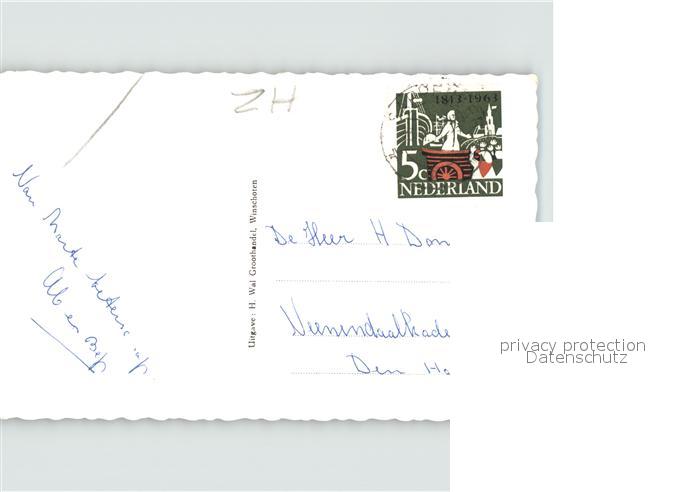 ZH
1813-1963
5c
NEDERLAND
Van
Ab en Bep
Uitgave: H. Wal Groothandel, Winschoten
De Heer H Don
Veenendaalkade
Den Ha
privacy protection
Datenschutz